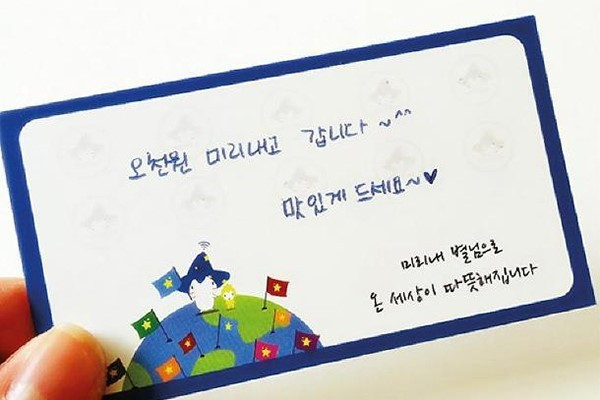 오천원 미리내고 갑니다~^^
맛있게 드세요~♥
미리내 별님으로
온 세상이 따뜻해집니다